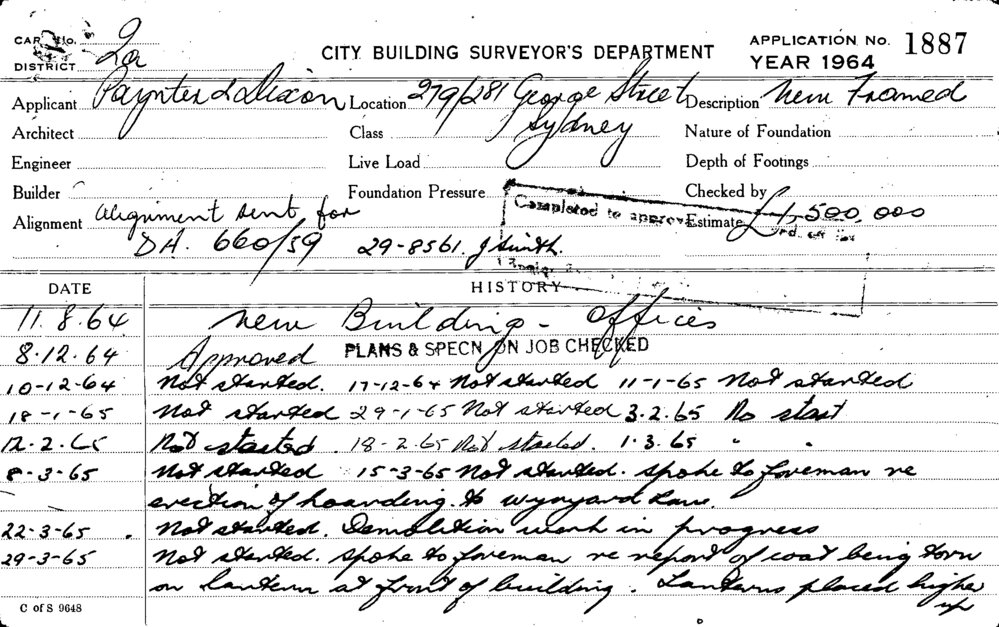 CARD No. 2a
DISTRICT
CITY BUILDING SURVEYOR'S DEPARTMENT
APPLICATION No. 1887
YEAR 1964
Applicant Paynter & Dixon Location 279/281 George Street Description New Framed
Architect Class Sydney Nature of Foundation
Engineer Live Load Depth of Footings
Builder Foundation Pressure Checked by
Completed to approved
Alignment Alignment sent for Estimate £ 500,000
DA. 660/59 29-8561. J Smith.
DATE HISTORY
11.8.64 New Building - Offices
8.12.64 Approved PLANS & SPECN ON JOB CHECKED
10-12-64 Not started. 17-12-64 Not started 11-1-65 Not started
18-1-65 Not started 29-1-65 Not started 3.2.65 No start
12.2.65 Not started. 18-2.65 Not started. 1.3.65 " "
8-3-65 Not started 15-3-65 Not started. Spoke to foreman re
erection of hoarding to Wynyard Lane.
22-3-65 . Not started. Demolition work in progress
29-3-65 Not started. Spoke to foreman re report of coat being torn
on lantern at front of building. Lanterns placed higher
up
C of S 9648